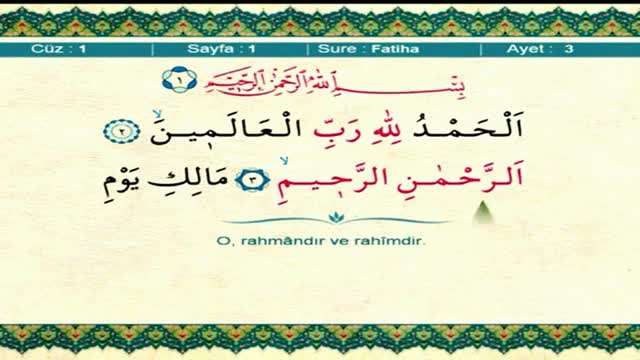 Cüz : 1 Sayfa : 1 Sure : Fatiha Ayet : 3
بِسْمِ اللّٰهِ الرَّحْمٰنِ الرَّحِيمِ ١
اَلْحَمْدُ لِلّٰهِ رَبِّ الْعَالَمِينَۙ ٢
اَلرَّحْمٰنِ الرَّحِيمِۙ ٣ مَالِكِ يَوْمِ
O, rahmândır ve rahîmdir.